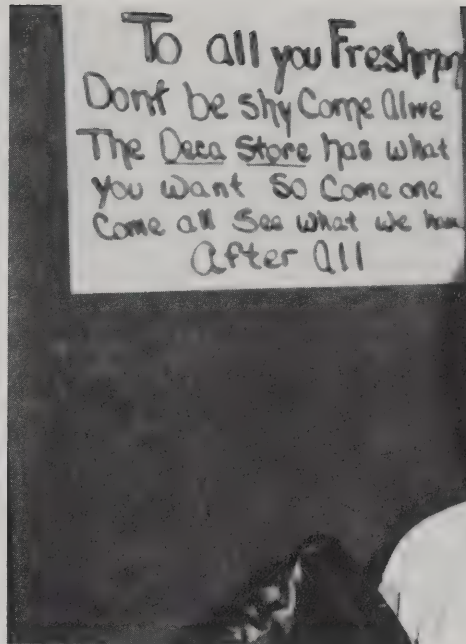 To all you Freshmen
Dont be shy Come Alive
The Deca Store has what
You want So Come one
Come all See what we have
After All